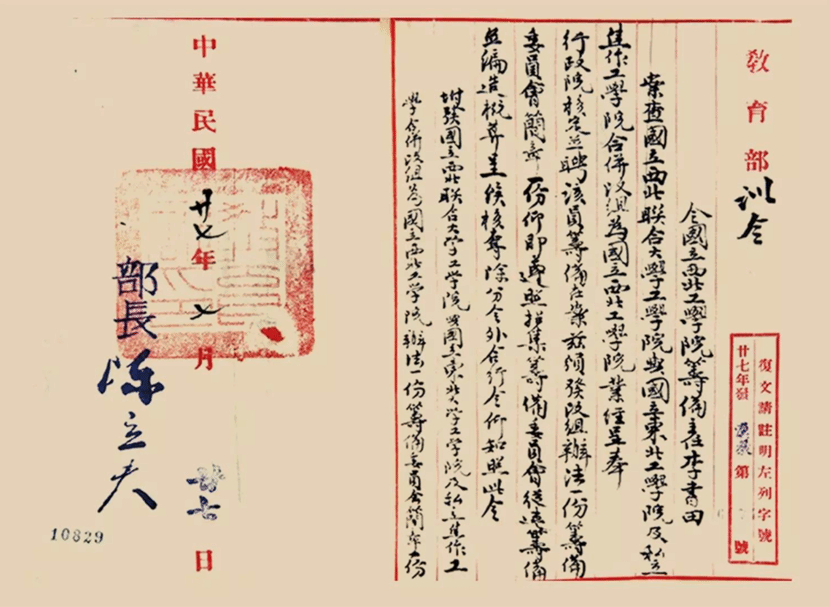 教育部訓令
復文請註明左列字號
廿七年發 第 號
令國立西北工學院籌備主任李書田
案查國立西北聯合大學工學院與國立東北工學院及私立
焦作工學院合併改組為國立西北工學院業經呈奉
行政院核定並聘該員籌備在案茲頒發改組辦法一份籌備
委員會簡章一份仰即遵照招集籌備委員會從速籌備
並編造概算呈候核奪除分令外合行令仰知照此令
附發國立西北聯合大學工學院與國立東北大學工學院及私立焦作工
學合併改組為國立西北工學院辦法一份籌備委員會簡章一份
中華民國廿七年七月廿七日
部長陳立夫
10829